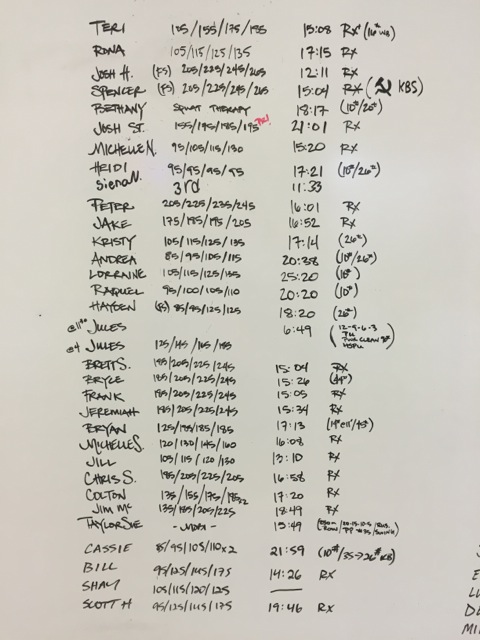 TERI 105/155/175/185 15:08 RX+ (16# WB)
RONA 105/115/125/135 17:15 RX
JOSH H. (FS) 205/225/245/265 12:11 RX
SPENCER (FS) 205/225/245/265 15:04 RX ( KBS)
BETHANY SQUAT THERAPY 18:17 (10#/26#)
JOSH ST. 155/175/185/195 PR! 21:01 RX
MICHELLE N. 95/105/115/130 15:20 RX
HEIDI 95/95/95/95 17:21 (10#/26#)
Siena N. 3rd 11:33
PETER 205/225/235/245 16:01 RX
JAKE 175/185/195/205 16:52 RX
KRISTY 105/115/125/135 17:14 (26#)
ANDREA 85/95/105/115 20:38 (10#/26#)
LORRAINE 105/115/125/135 25:20 (10#)
RAQUEL 95/100/105/110 20:20 (10#)
HAYDEN (FS) 85/95/125/125 18:20 (26#)
JULES 6:49 (12-9-6-3 PWR CLEAN HSPU)
@4 JULES 125/145/165/185
BRETT S. 185/205/225/245 15:04 RX
BRYCE 185/205/225/245 15:26
FRANK 185/205/225/245 15:05 RX
JEREMIAH 185/205/225/245 15:34 RX
BRYAN 125/155/185/185 17:13
MICHELLE S. 120/130/145/160 16:08 RX
JILL 105/115/120/130 13:10 RX
CHRIS S. 185/205/225/205 16:58 RX
COLTON 135/155/175/185x2 17:20 RX
JIM MC 135/185/205/225 18:49 RX
TAYLOR SIE 15:49
CASSIE 85/95/105/110x2 21:59 (10#/35→26# KB)
BILL 95/125/145/175 14:26 RX
SHAY 105/115/120/125 —
SCOTT H 95/125/145/175 19:46 RX